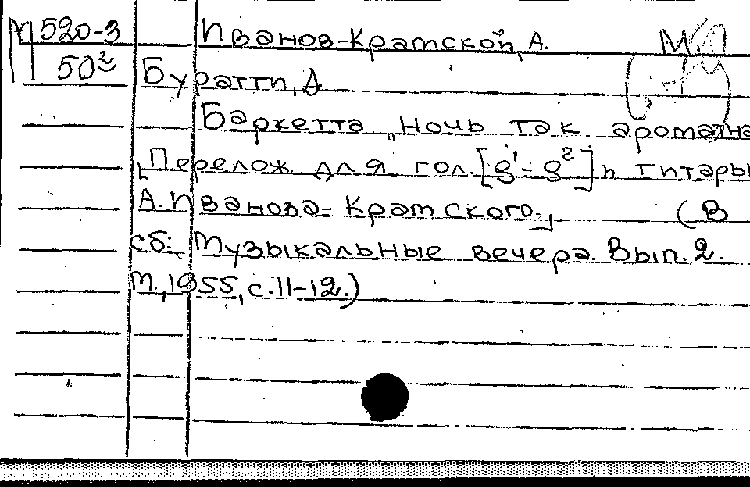 М 520-3 Иванов-Крамской, А.
50² Буратти, А
Баркетта „Ночь так ароматна
[Перелож для гол. [g¹-g²] и гитары
А. Иванова-Крамского.] (В
сб.: Музыкальные вечера. Вып. 2.
М., 1955, с. 11-12.)